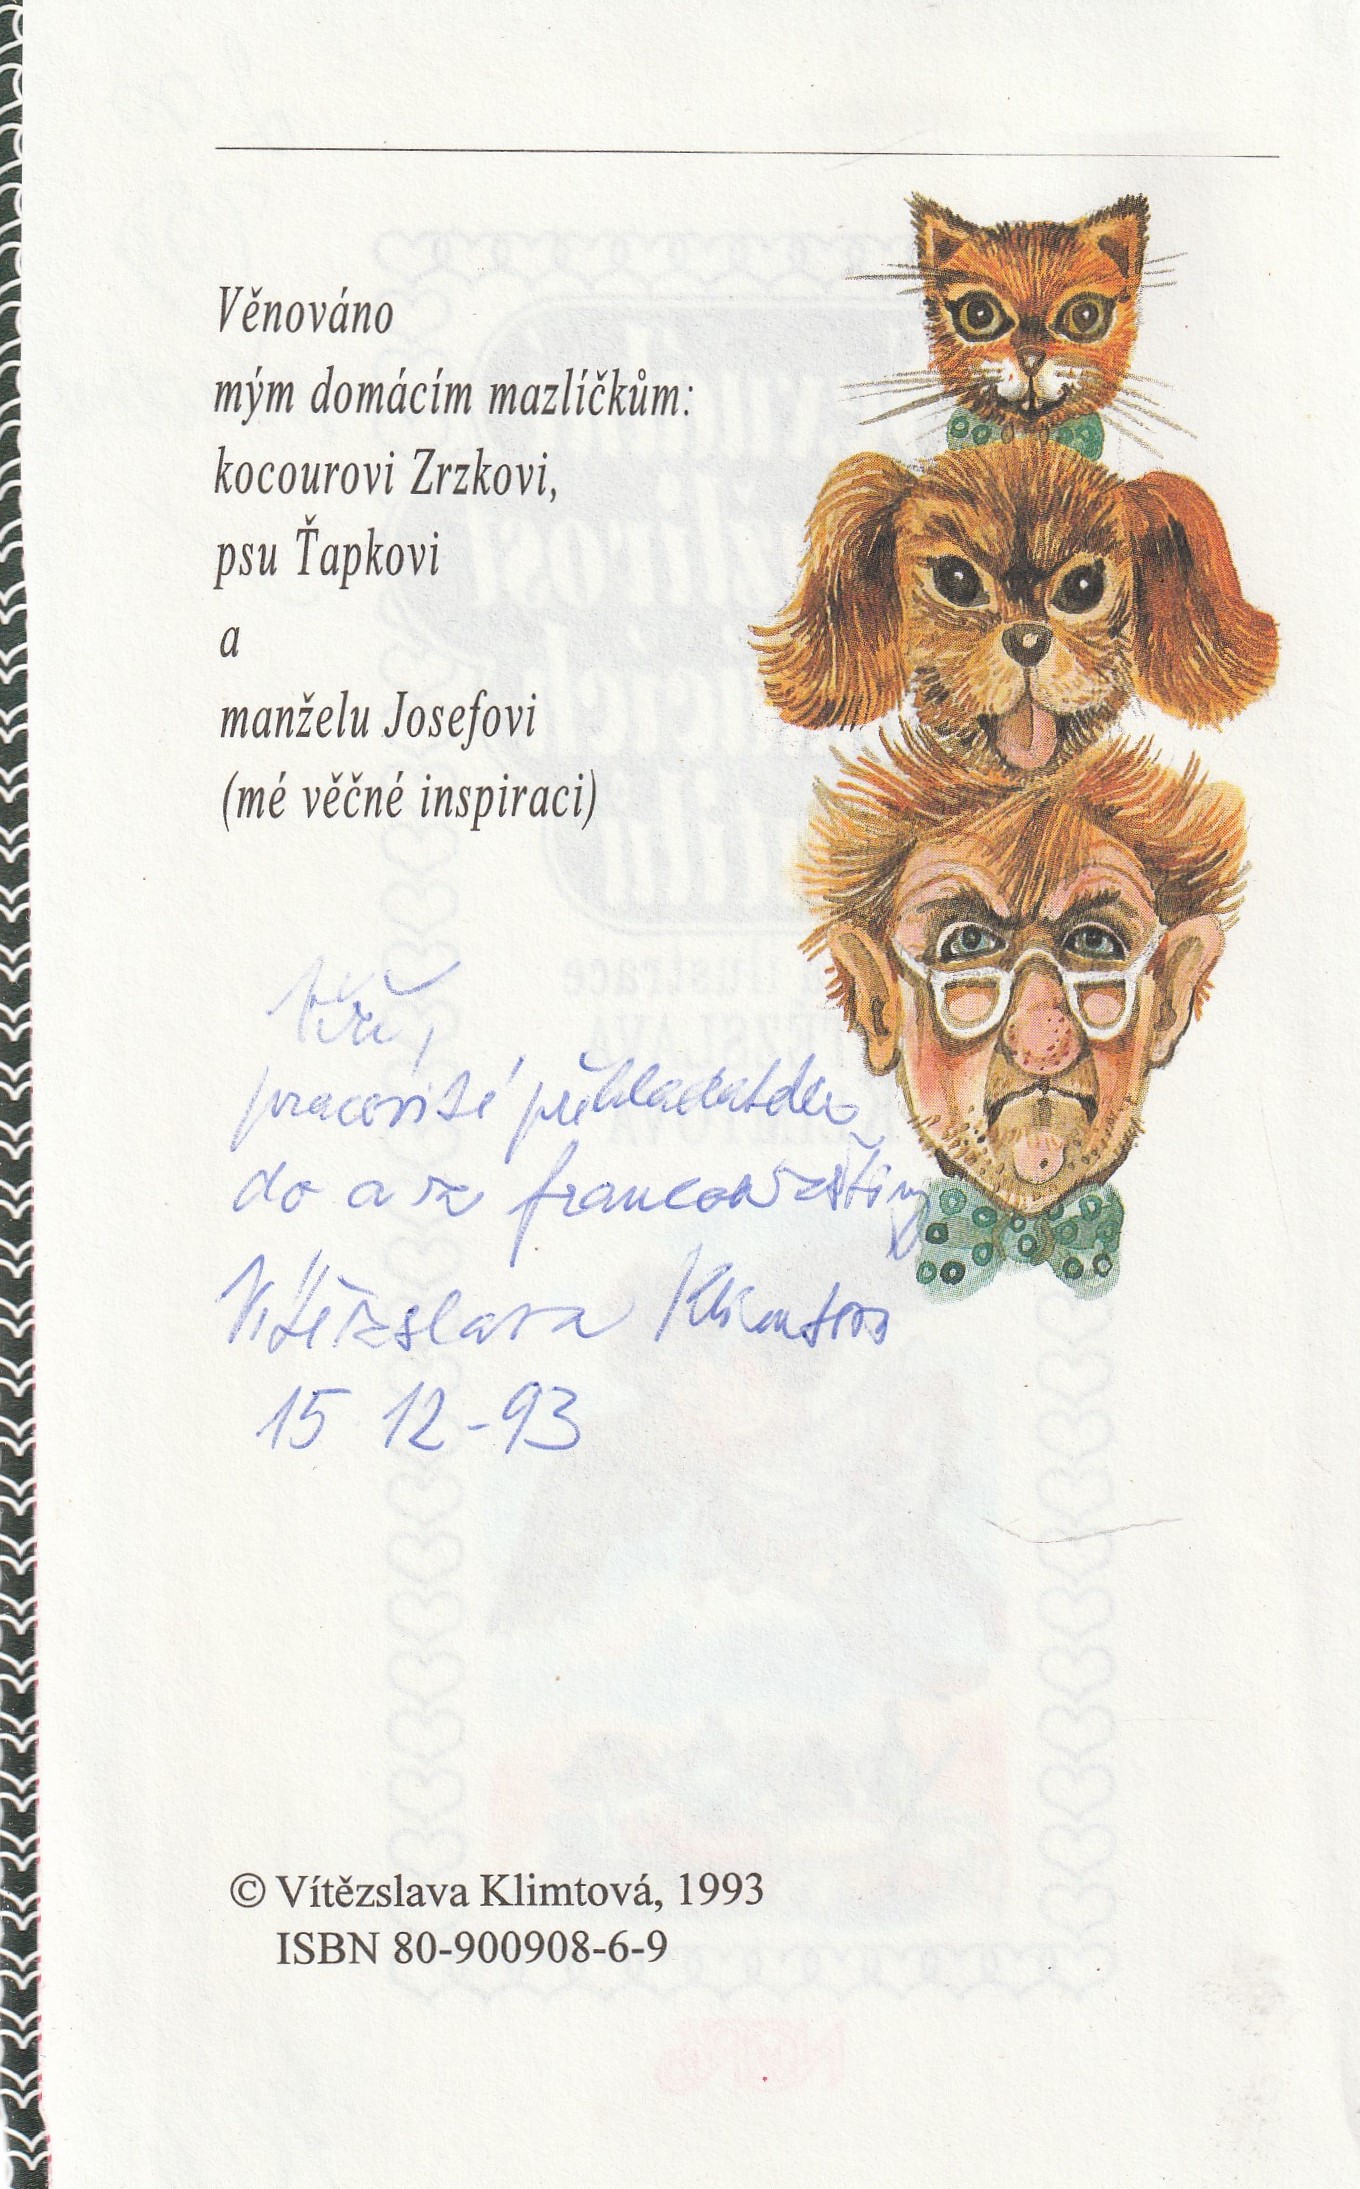 Věnováno
mým domácím mazlíčkům:
kocourovi Zrzkovi,
psu Ťapkovi
a
manželu Josefovi
(mé věčné inspiraci)
pracovité překladatelce
do a z francouzštiny
Vítězslava Klimtová
15 12 - 93
© Vítězslava Klimtová, 1993
ISBN 80-900908-6-9